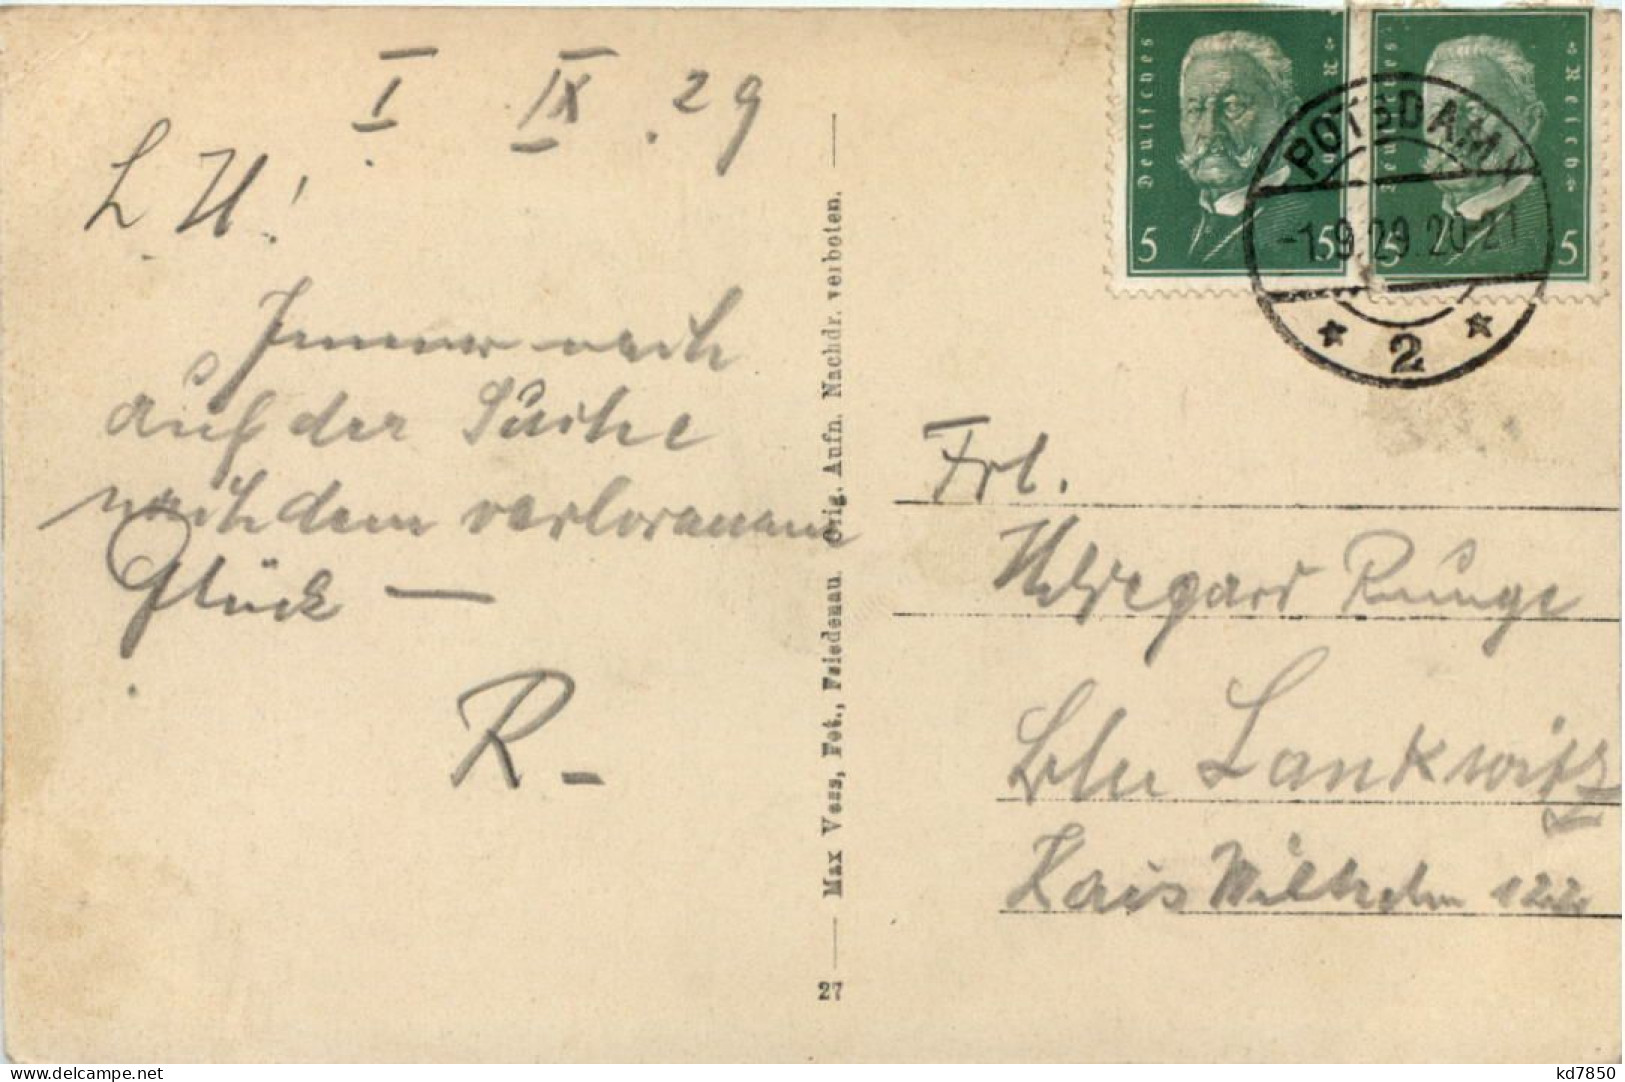 I IX .29
L H!
Immer noch
auf der Suche
nach dem verlorenen
Glück —
R-
Max Vess, Fot., Friedenau. Orig. Aufn. Nachdr. verboten.
27
Deutsches Reich
5 5
Deutsches Reich
5 5
POTSDAM
-1.9.29.20-21
* 2 *
Frl.
Hildegard Runge
Bln Lankwitz
Kais Wilhelm 122
kd7850